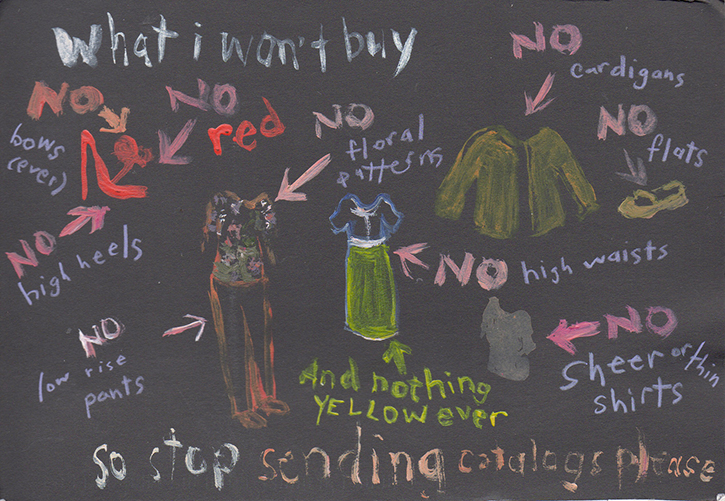 What i won't buy
NO
cardigans
NO
bows
(ever)
NO
red
NO
floral
patterns
NO
flats
NO
high heels
NO high waists
NO
low rise
pants
NO
sheer or thin
shirts
And nothing
YELLOW ever
so stop sending catalogs please